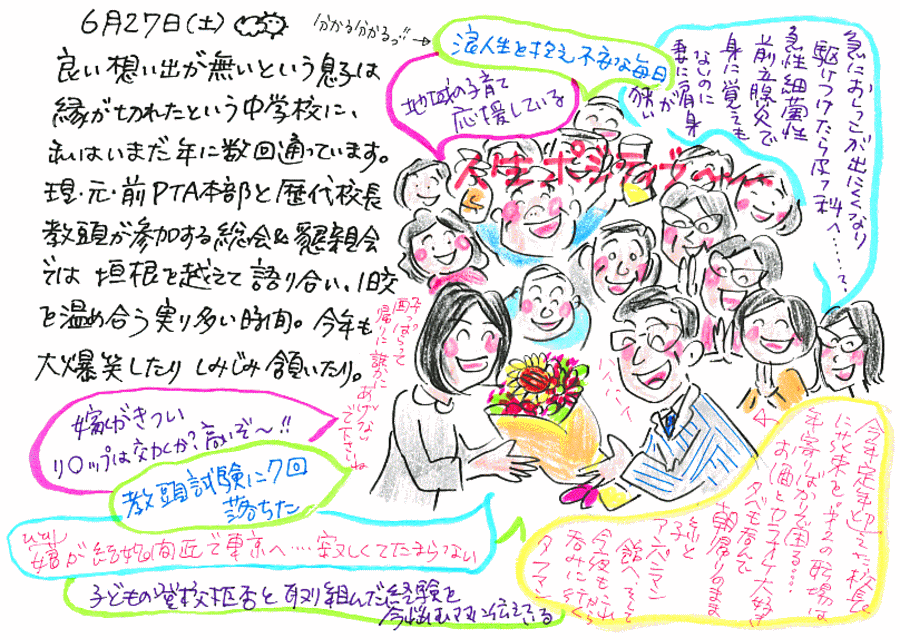 6月27日(土)
分かる分かるっ!!
良い想い出が無いという息子は
縁が切れたという中学校に、
私はいまだ年に数回通っています。
現・元・前PTA本部と歴代校長
教頭が参加する総会&懇親会
では垣根を越えて語り合い、旧交
を温め合う実り多い時間。今年も
大爆笑したりしみじみ頷いたり。
浪人生を抱え不安な毎日
地域の子育て
応援している
急におしっこが出にくくなり
駆けつけたら皮フ科へ……?
急性細菌性
前立腺炎で
身に覚えも
ないのに
妻に肩身
が
狭い
人生ポジティブ〜〜
酔っぱらって
帰りに誰かに
あげない
で下さいね
ハハハハ
嫁がきつい
リ〇ップは効くか?高いぞ〜!!
教頭試験に7回
落ちた
娘が結婚
で東京へ…寂しくてたまらない
子どもの登校拒否と取り組んだ経験を
今悩むママに伝えている
今年定年迎えた校長。
年寄りばかりで困る…
お酒とカラオケ大好き
朝帰りのまま
孫と
アンパンマン
今夜もこれ
呑みに行く
タフマン